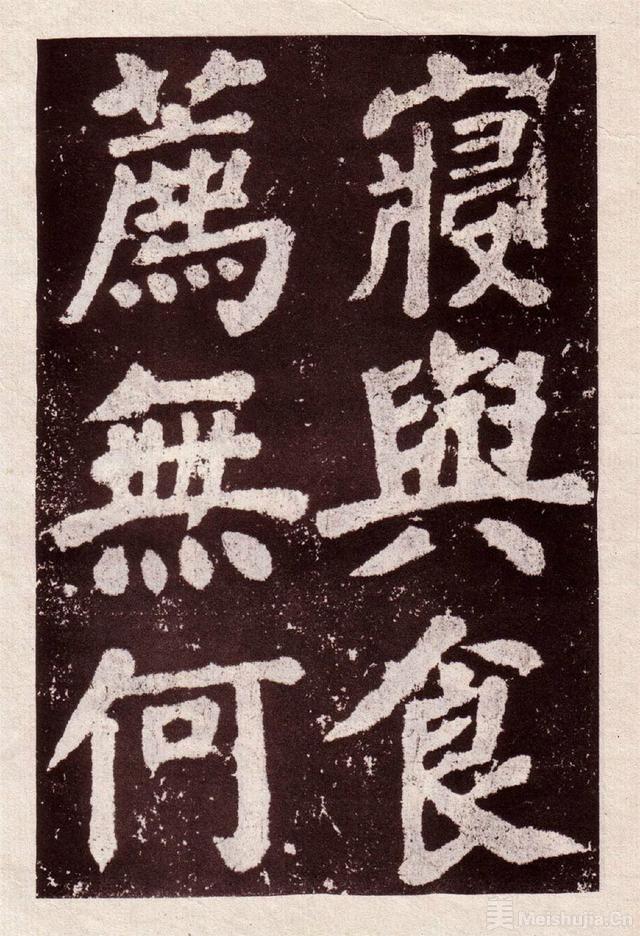 寢與食
薦無何
美 Meishujia.Cn